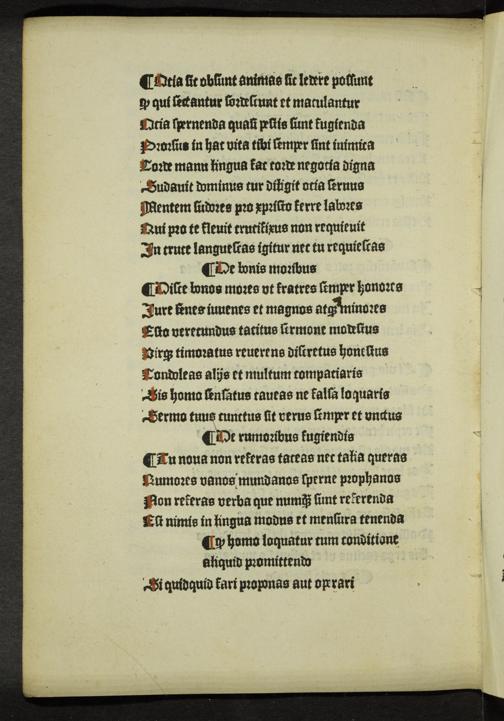 ¶Ocia sic obsunt animas sic ledere possunt
Qꝫ qui sectantur sordescunt et maculantur
Ocia spernenda quasi pestis sunt fugienda
Prorsus in hac vita tibi semper sint inimica
Corde manu lingua fac corde negocia digna
Sudauit dominus cur diligit ocia seruus
Mentem sudores pro xpristo ferre labores
Qui pro te fleuit crucifixus non requieuit
In cruce languescas igitur nec tu requiescas
¶De bonis moribus
¶Disce bonos mores vt fratres semper honores
Iure senes iuuenes et magnos atqꝫ minores
Esto verecundus tacitus sermone modestus
Virqꝫ timoratus reuerens discretus honestus
Condoleas alijs et multum compaciaris
Sis homo sensatus caueas ne falsa loquaris
Sermo tuus cunctus sit verus semper et vnctus
¶De rumoribus fugiendis
¶Tu noua non referas taceas nec talia queras
Rumores vanos mundanos sperne prophanos
Non referas verba que numqꝫ sunt referenda
Est nimis in lingua modus et mensura tenenda
¶Qꝫ homo loquatur cum conditione
aliquid promittendo
Si quidquid fari proponas aut operari